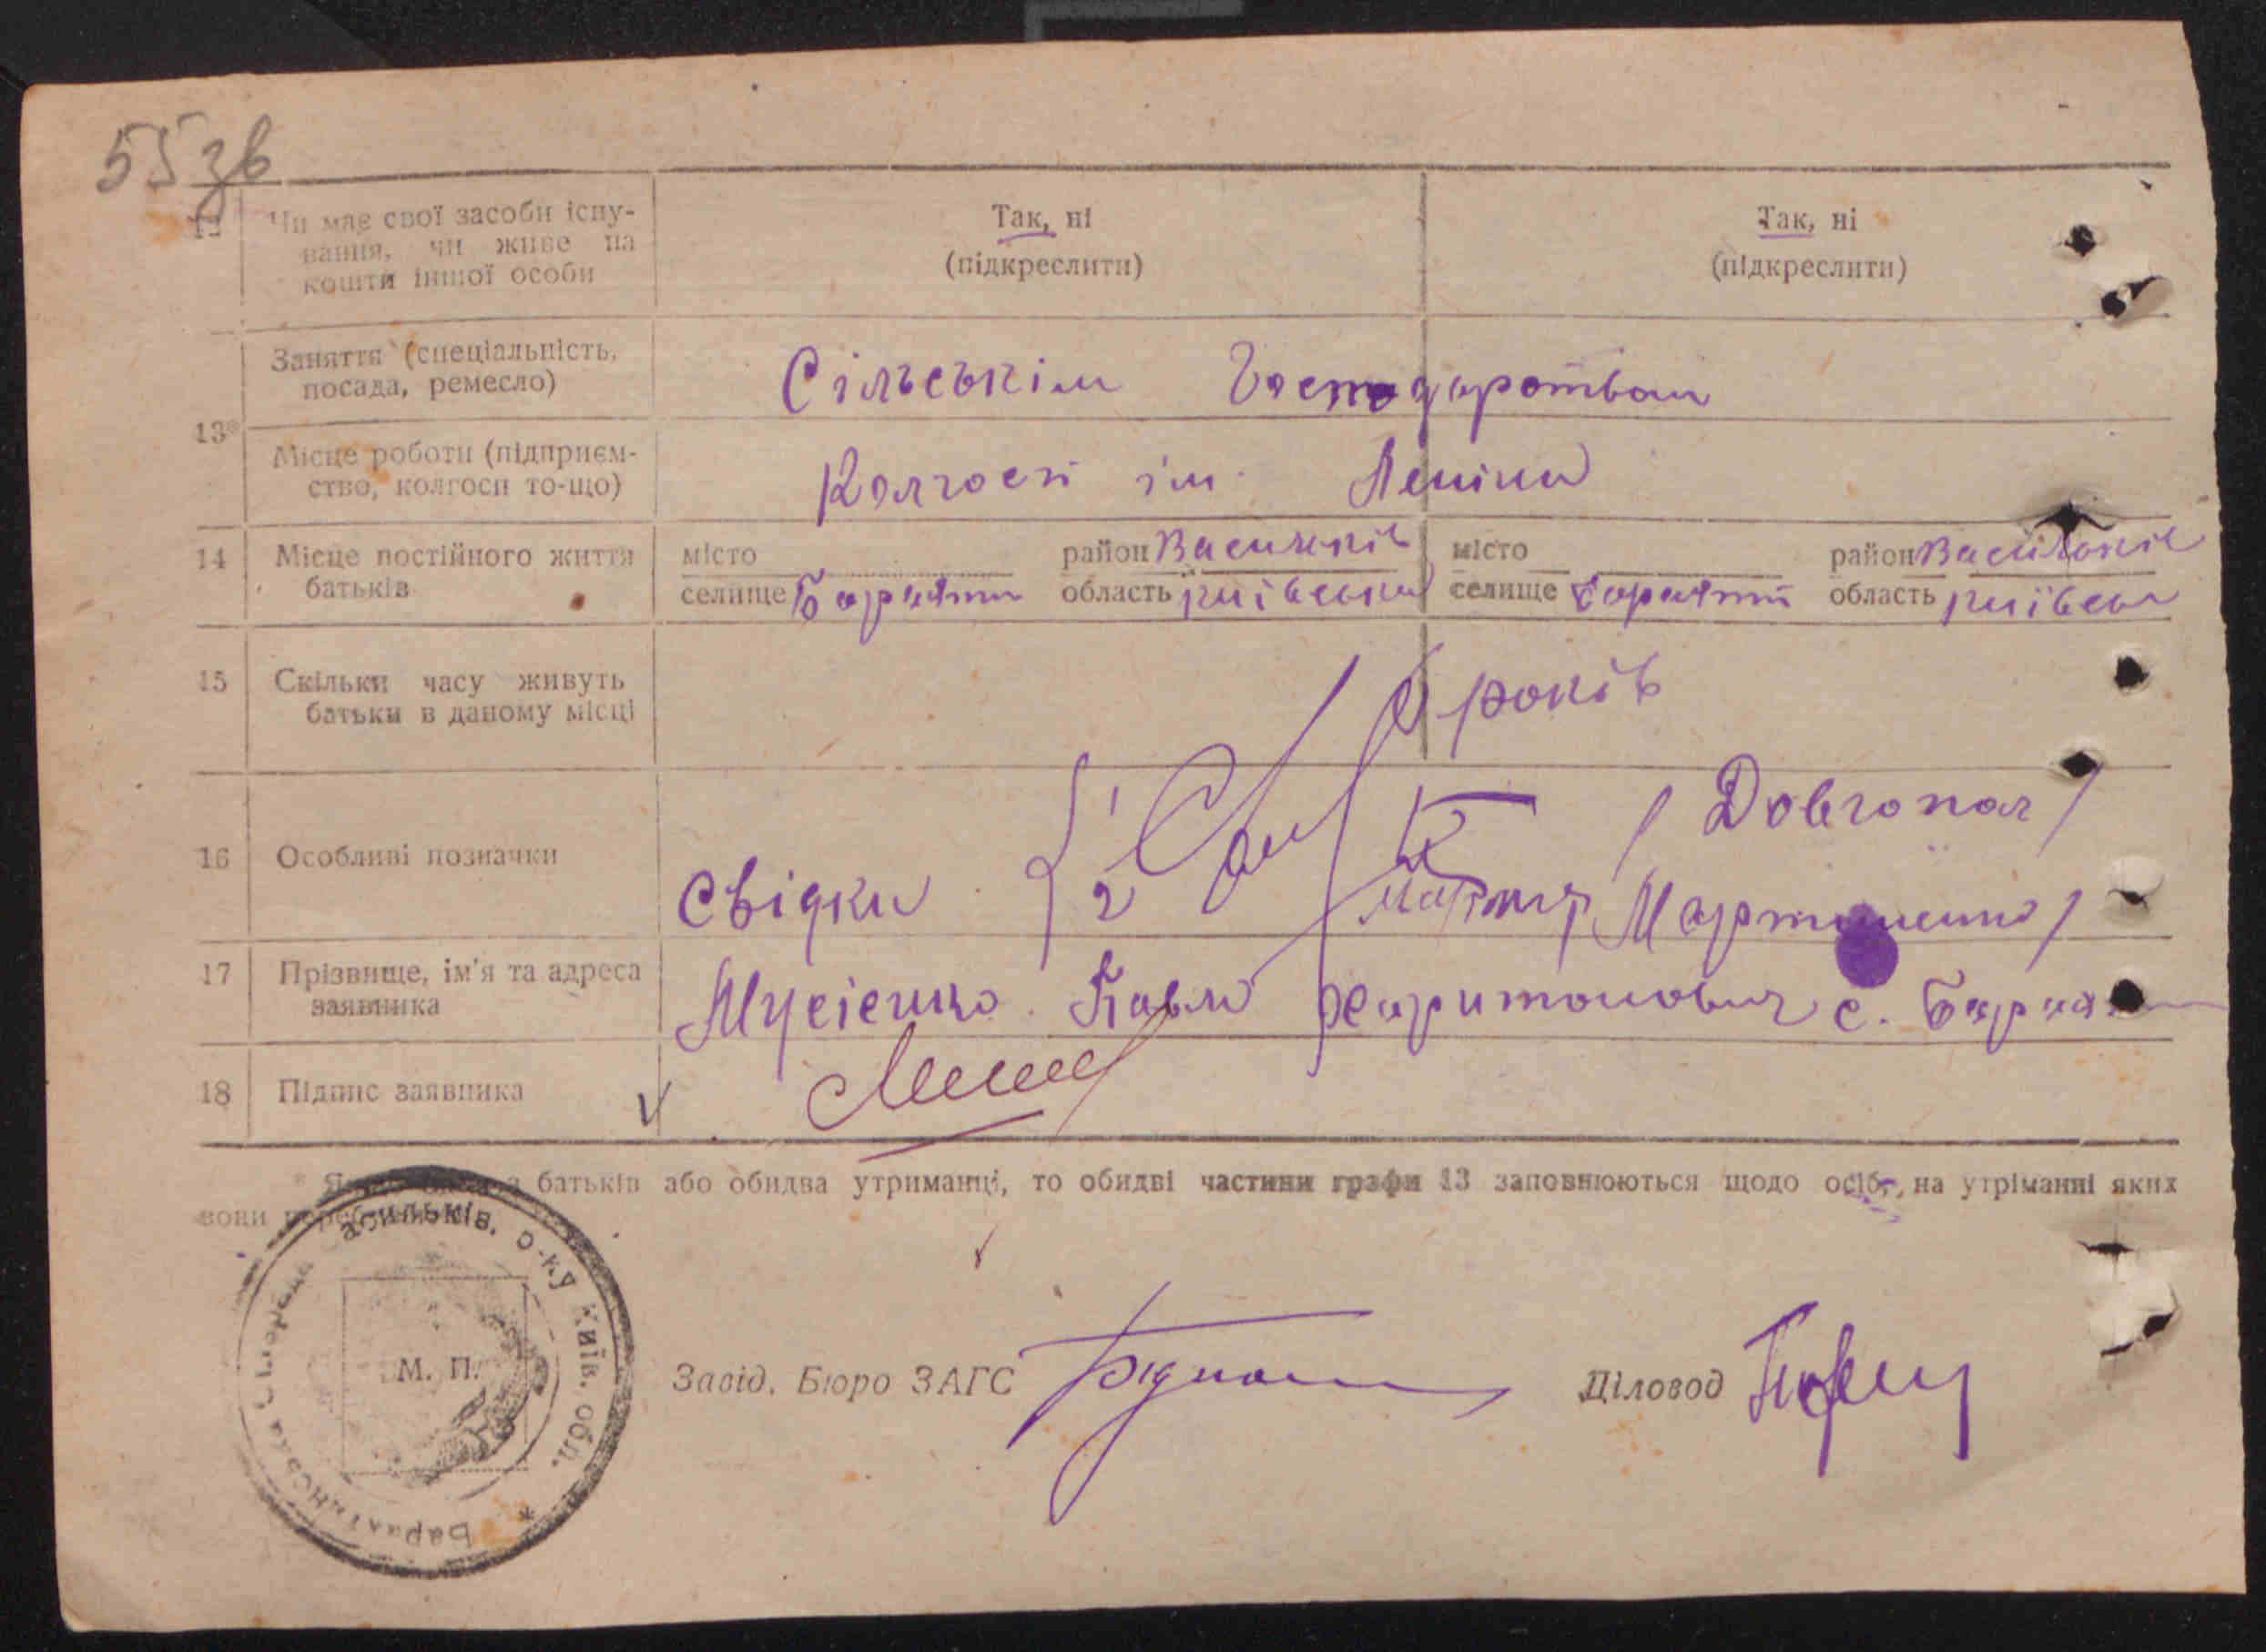 55зв
12 Чи має свої засоби існу-
вання, чи живе на
кошти іншої особи
Так, ні
(підкреслити)
Так, ні
(підкреслити)
13*
Заняття (спеціальність,
посада, ремесло)
Сільським Господарством
Місце роботи (підприєм-
ство, колгосп то-що)
Колгосп ім. Леніна
14 Місце постійного життя
батьків
місто район Васильків
селище область київська
місто район Васильків
селище область київськ
15 Скільки часу живуть
батьки в даному місці
років
16 Особливі позначки
Свідки 1
2
17 Прізвище, ім'я та адреса
заявника
Мусієнко Павло Харитонович с.
18 Підпис заявника
* батьків або обидва утриманці, то обидві частини графи 13 заповнюються щодо осіб, на утріманні яких
вони
Васильків. р-ку Київ. обл.
М. П.
Завід. Бюро ЗАГС
Діловод